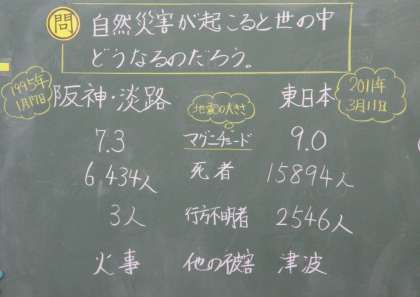 問 自然災害が起こると世の中
どうなるのだろう。
1995年
1月17日
阪神・淡路
地震の大きさ
東日本
2011年
3月11日
7.3 マグニチュード 9.0
6,434人 死者 15894人
3人 行方不明者 2546人
火事 他の被害 津波